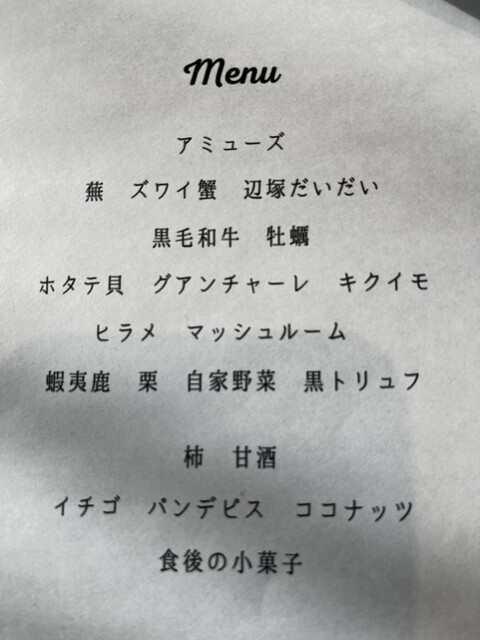 Menu
アミューズ
蕪　ズワイ蟹　辺塚だいだい
黒毛和牛　牡蠣
ホタテ貝　グアンチャーレ　キクイモ
ヒラメ　マッシュルーム
蝦夷鹿　栗　自家野菜　黒トリュフ
柿　甘酒
イチゴ　パンデピス　ココナッツ
食後の小菓子